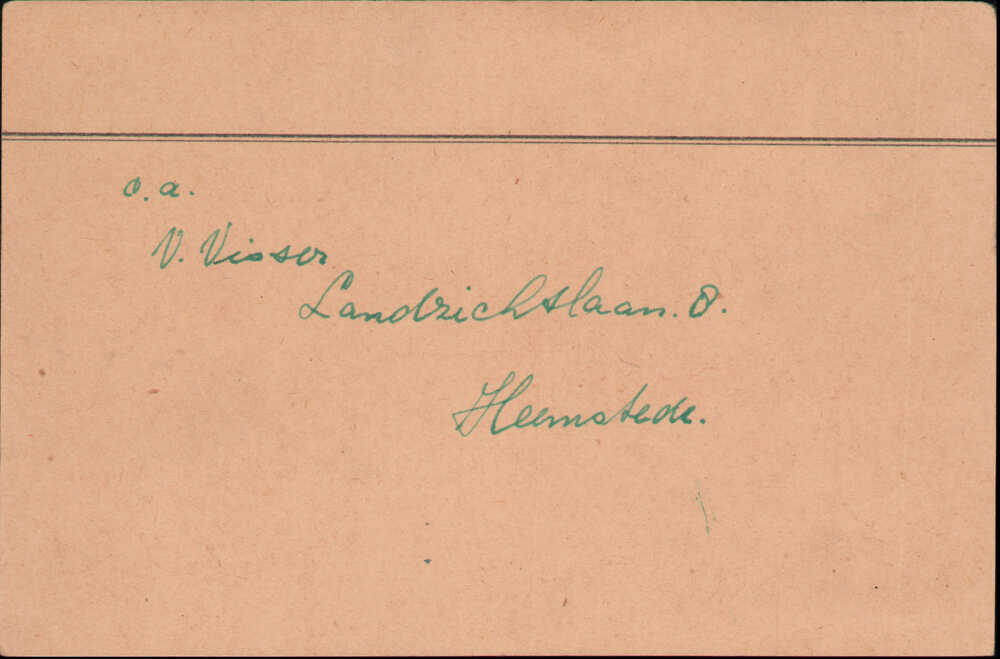 c.a.
V. Visser
Landzichtlaan. 8.
Heemstede.